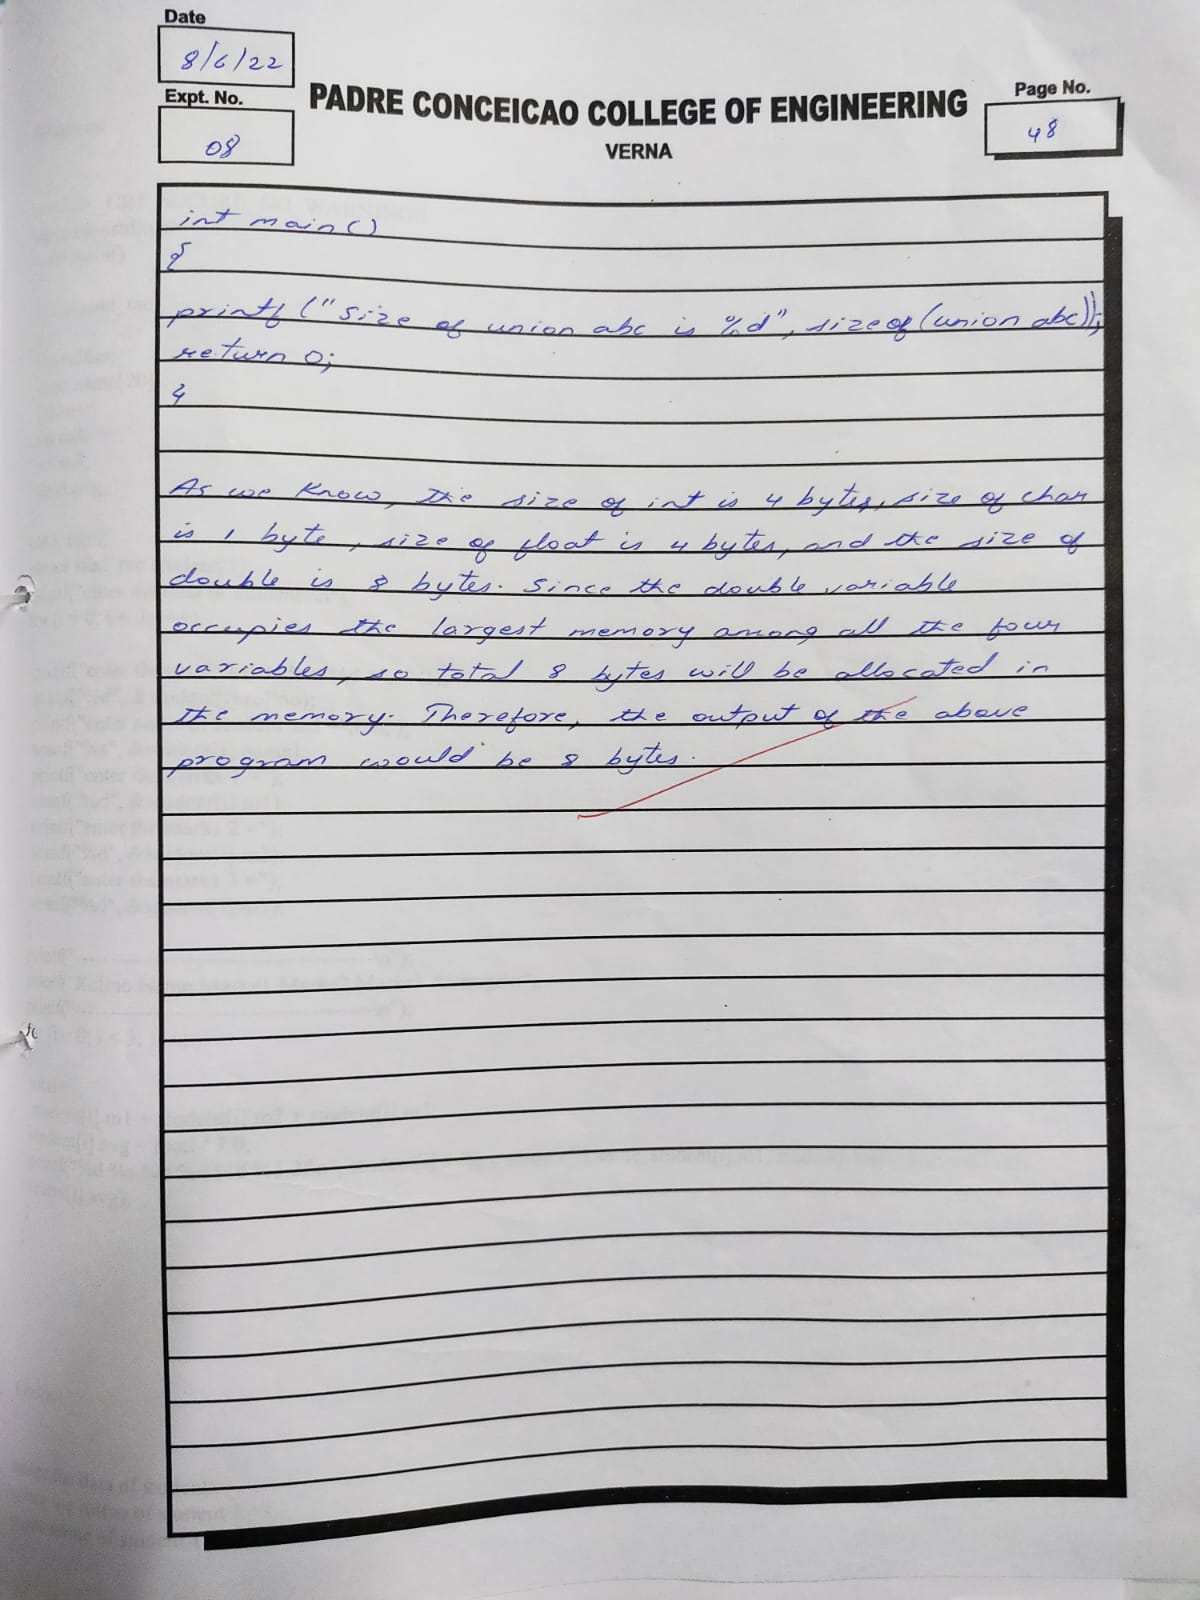 Date
8/6/22
Expt. No.
08
PADRE CONCEICAO COLLEGE OF ENGINEERING
VERNA
Page No.
48
int main()
{
printf("Size of union abc is %d", sizeof(union abc));
return 0;
}
As we know, the size of int is 4 bytes, size of char
is 1 byte, size of float is 4 bytes, and the size of
double is 8 bytes. Since the double variable
occupies the largest memory among all the four
variables, so total 8 bytes will be allocated in
the memory. Therefore, the output of the above
program would be 8 bytes.